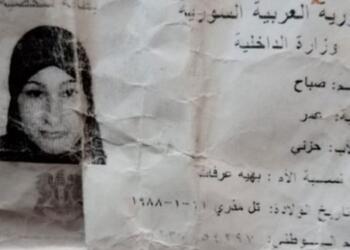 بطاقة شخصية
رية العربية السورية
وزارة الداخلية
صباح
عمر
حزني
نسبة الأم : بهيه عرفات
اريخ الولادة: تل مغري ١-١-١٩٨٨